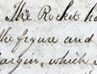 The Rocket
the figure and
margin, which